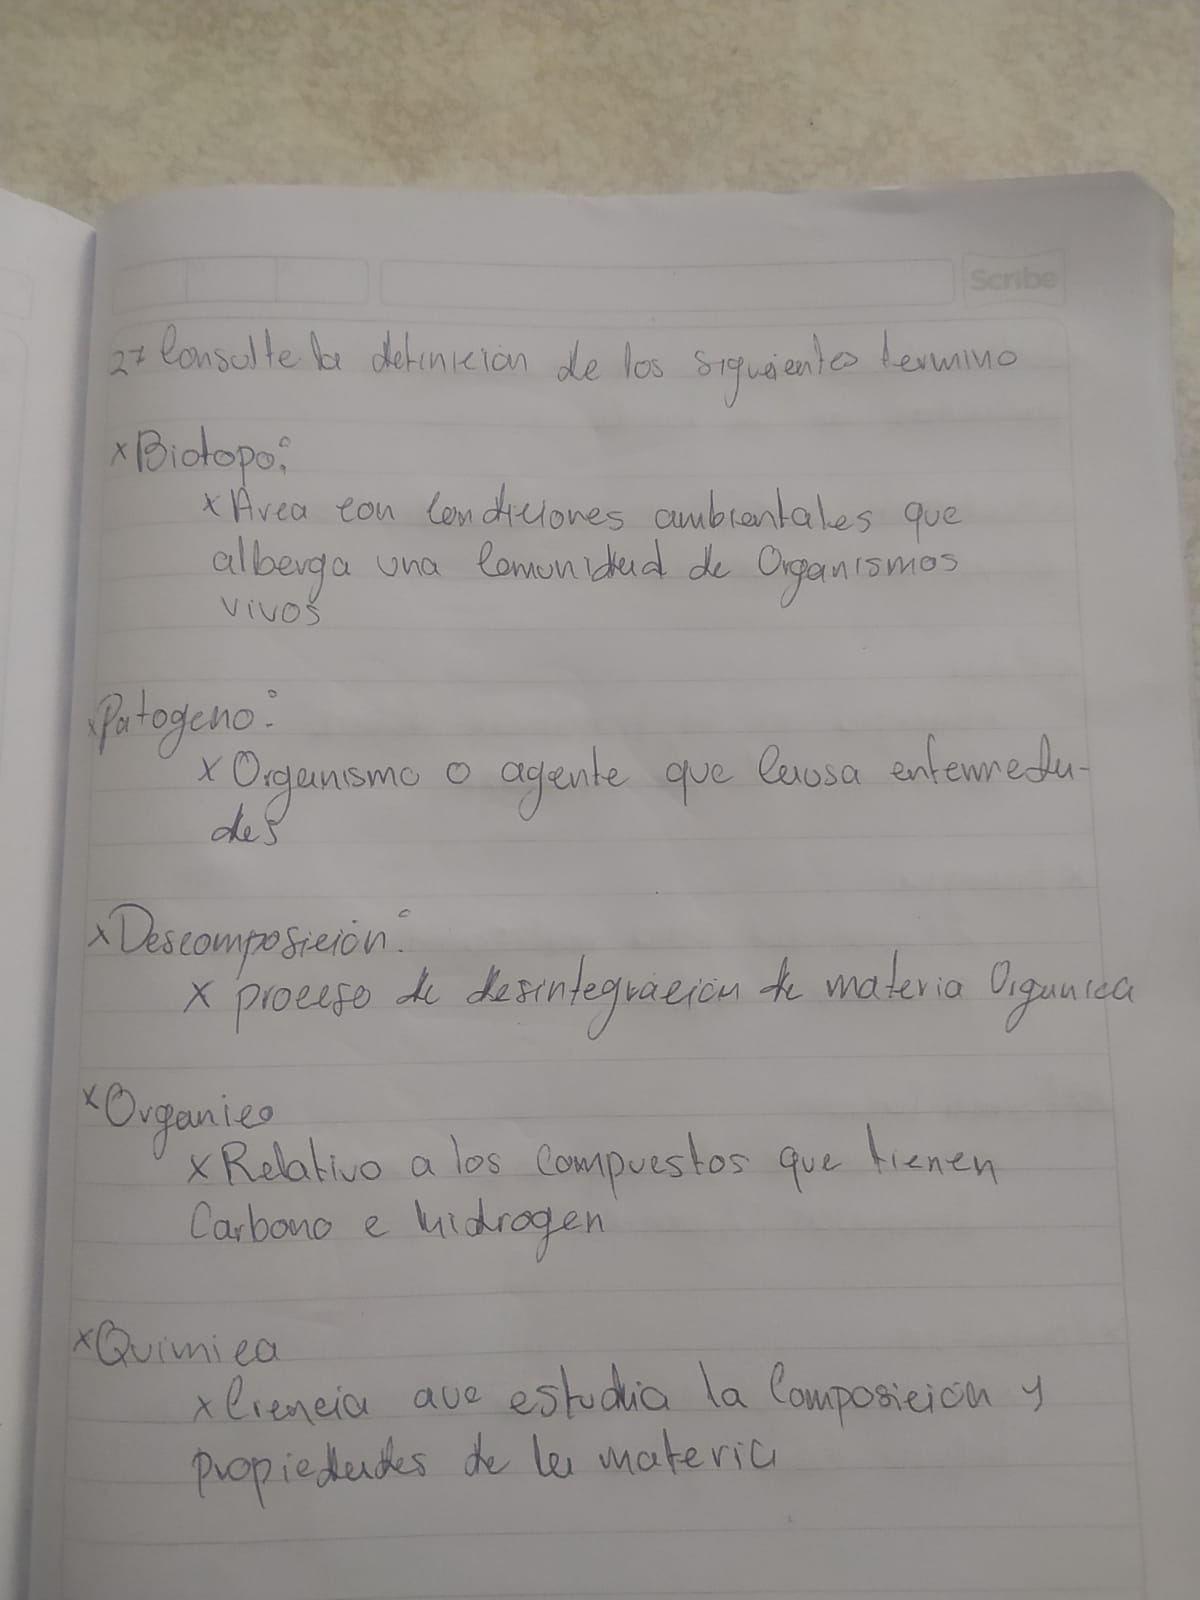 Scribe
27 Consulte la definición de los siguientes termino
x Biotopo:
x Área con Condiciones ambientales que
alberga una Comunidad de Organismos
vivos
x Patogeno:
x Organismo o agente que Causa enfermeda-
des
x Descomposición:
x proceso de desintegración de materia Organica
x Organico
x Relativo a los Compuestos que tienen
Carbono e hidrogen
x Quimica
x Ciencia que estudia la Composición y
propiedades de la materia